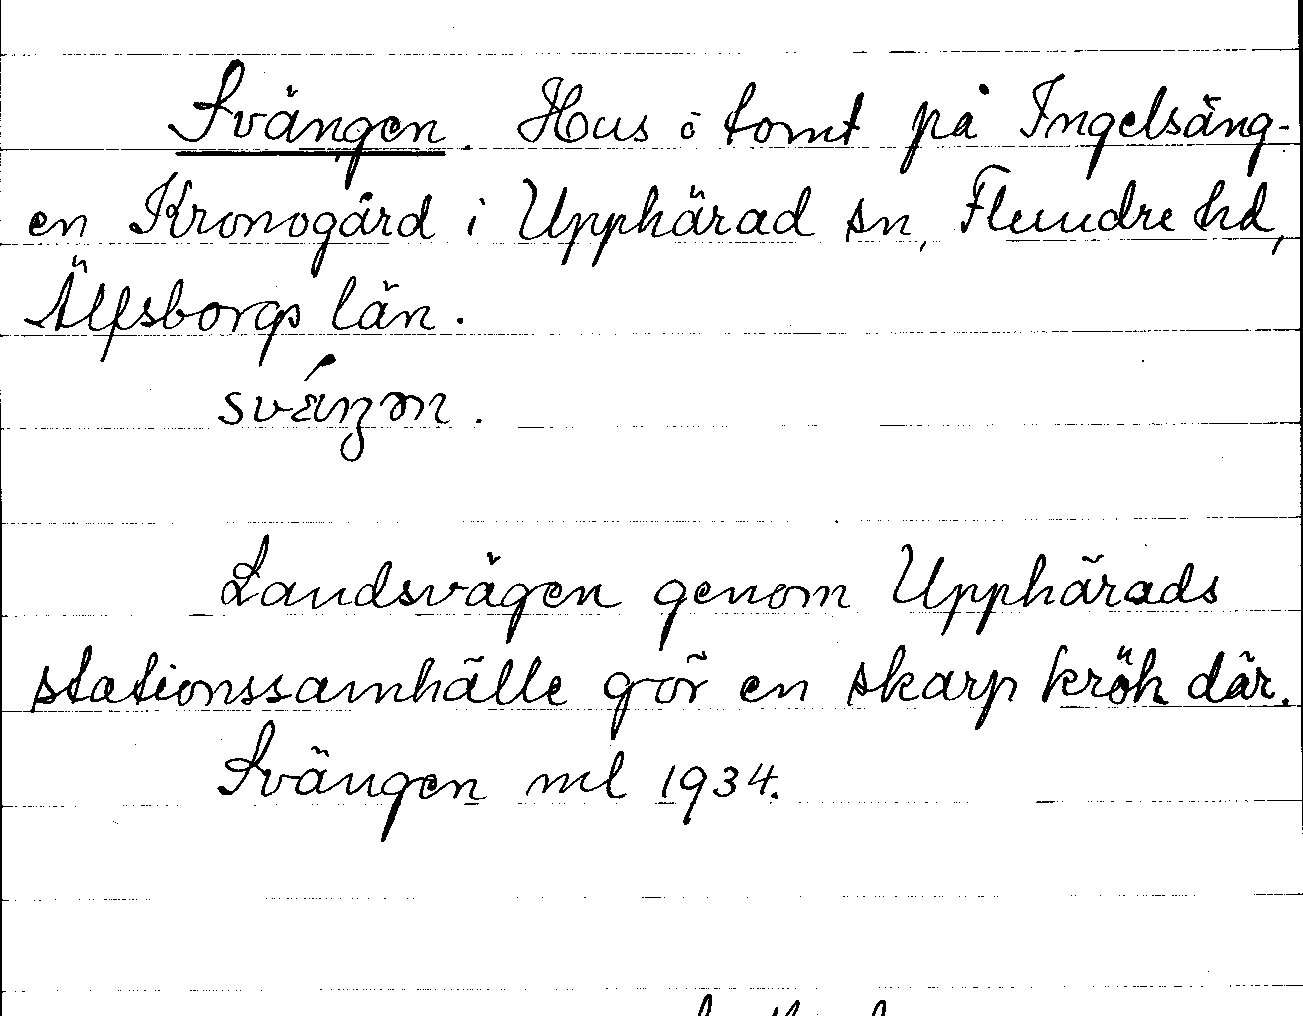 Svängen. Hus o tomt på Ingelsäng-
en Kronogård i Upphärad sn, Flundre hd,
Älfsborgs län.
Landsvägen genom Upphärads
stationssamhälle gör en skarp krök där.
Svängen ml 1934.